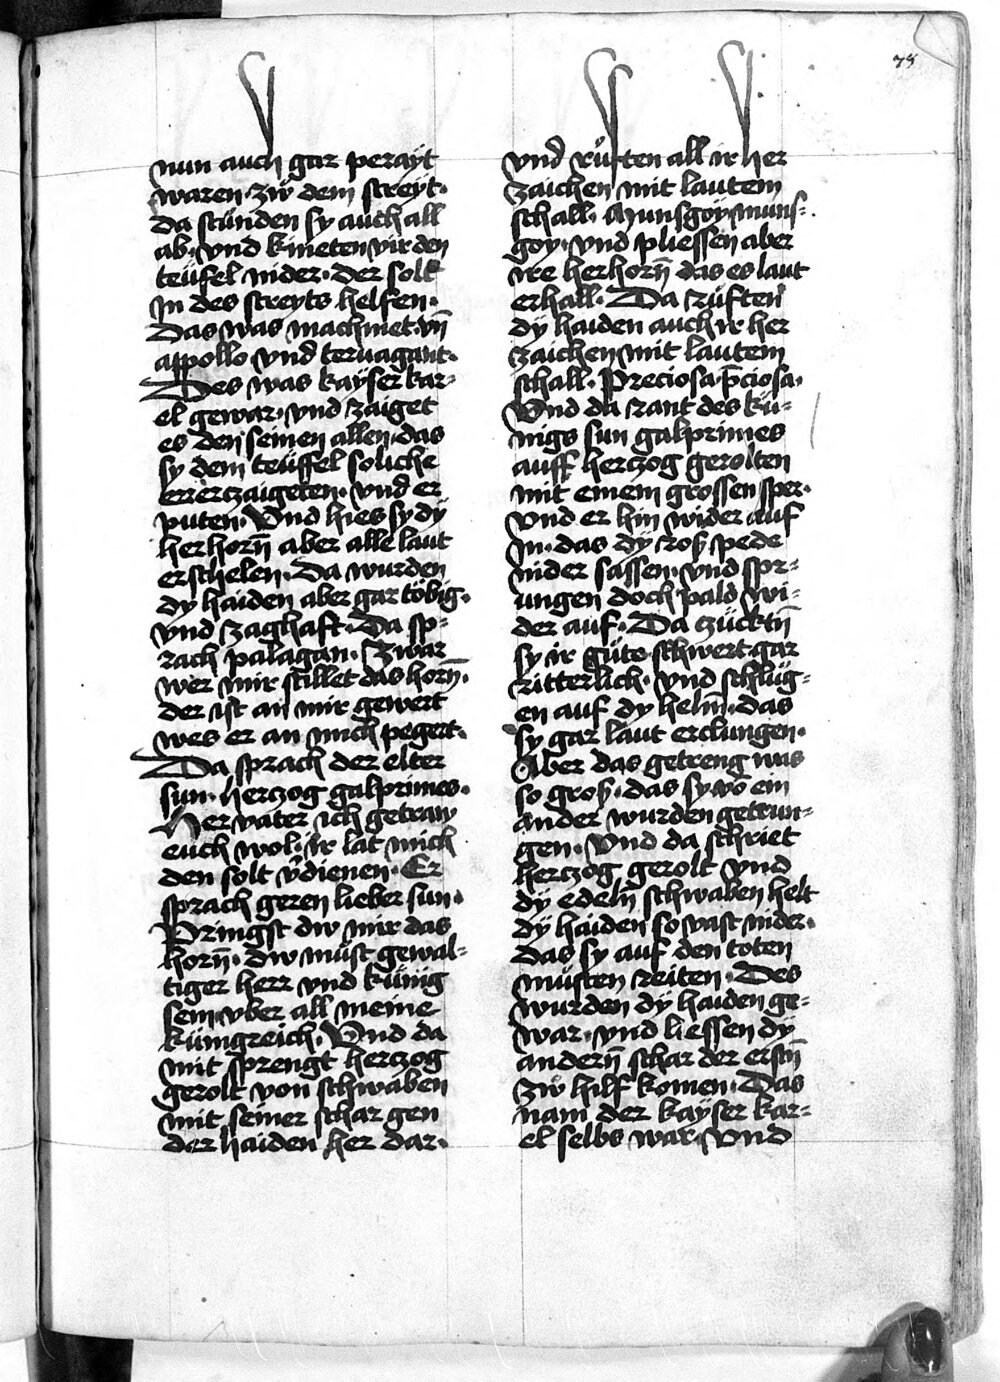 75
nun auch gar perayt
waren · zw̋ dem streyt ·
da stu̎nden sy auch all
ab · vnd knieten vir den
teu̎fel nider · der solt
In des streyts helfen ·
Das was machmet · vn̄
appollo vnd teruagant ·
Des was kayser kar-
el gewar · vnd zaiget
es den seinen allen · das
sy dem teu̎ffel soliche
er erczaigeten · vnd er
puten · Vnd hies sy dÿ
herhorn̄ aber alle laut
erschelen · Da wurden
dy haiden aber gar töbig ·
vnd zaghaft · Da sp-
rach palagan · Zwar
wer mir stillet das horn̄ ·
der ist an mir gewert
wes er an mich pegert ·
Da sprach der elter
sun · herczog galprimes ·
Her vater ich getraw
euch wol · ir lat mich
den solt v̄dienen · Er
sprach geren lieber sun ·
Pringst dw mir das
horn̄ · dw mu̎st gewal-
tiger herr vnd ku̎nig
sein vber all meine
ku̎nigreich · Vnd da
mit sprengt herczog
gerolt von schwaben
mit seiner schar gen
der haiden her dar ·
vnd ru̎ften all ir her
zaichen mit lautem
schall · Munsgoy · muns-
goy · vnd pliessen aber
ire herhorn̄ das es laut
erhall · Da ru̎ften
dÿ haiden auch ir her
zaichen mit lautem
schall · Preciosa · p̄ciosa ·
Vnd da rant des ku̎-
nigs sun galprimes
auff herczog gerolten
mit einem grossen sper ·
vnd er hin wider auf
In · das dy roß pede
nider sassen · vnd spr-
ungen doch pald wi-
der auf · Da zu̎cktn̄
sy ir gu̎te schwert · gar
ritterlich · vnd schlu̎g-
en auf dy helm̄ · das
sy gar laut erclungen ·
Aber das getreng was
so groß · das sy vō ein
ander wurden getrun-
gen · Vnd da schriet
herczog gerolt vnd
dÿ edeln̄ schwaben helt
dÿ haiden so vast nider ·
das sy auf den toten
mu̎sten reiten · Des
wurden dÿ haiden ge-
war · vnd liessen dÿ
andern̄ schar der erstn̄
zw̋ hilf komen · Das
nam der kayser kar-
el selbs war · vnd